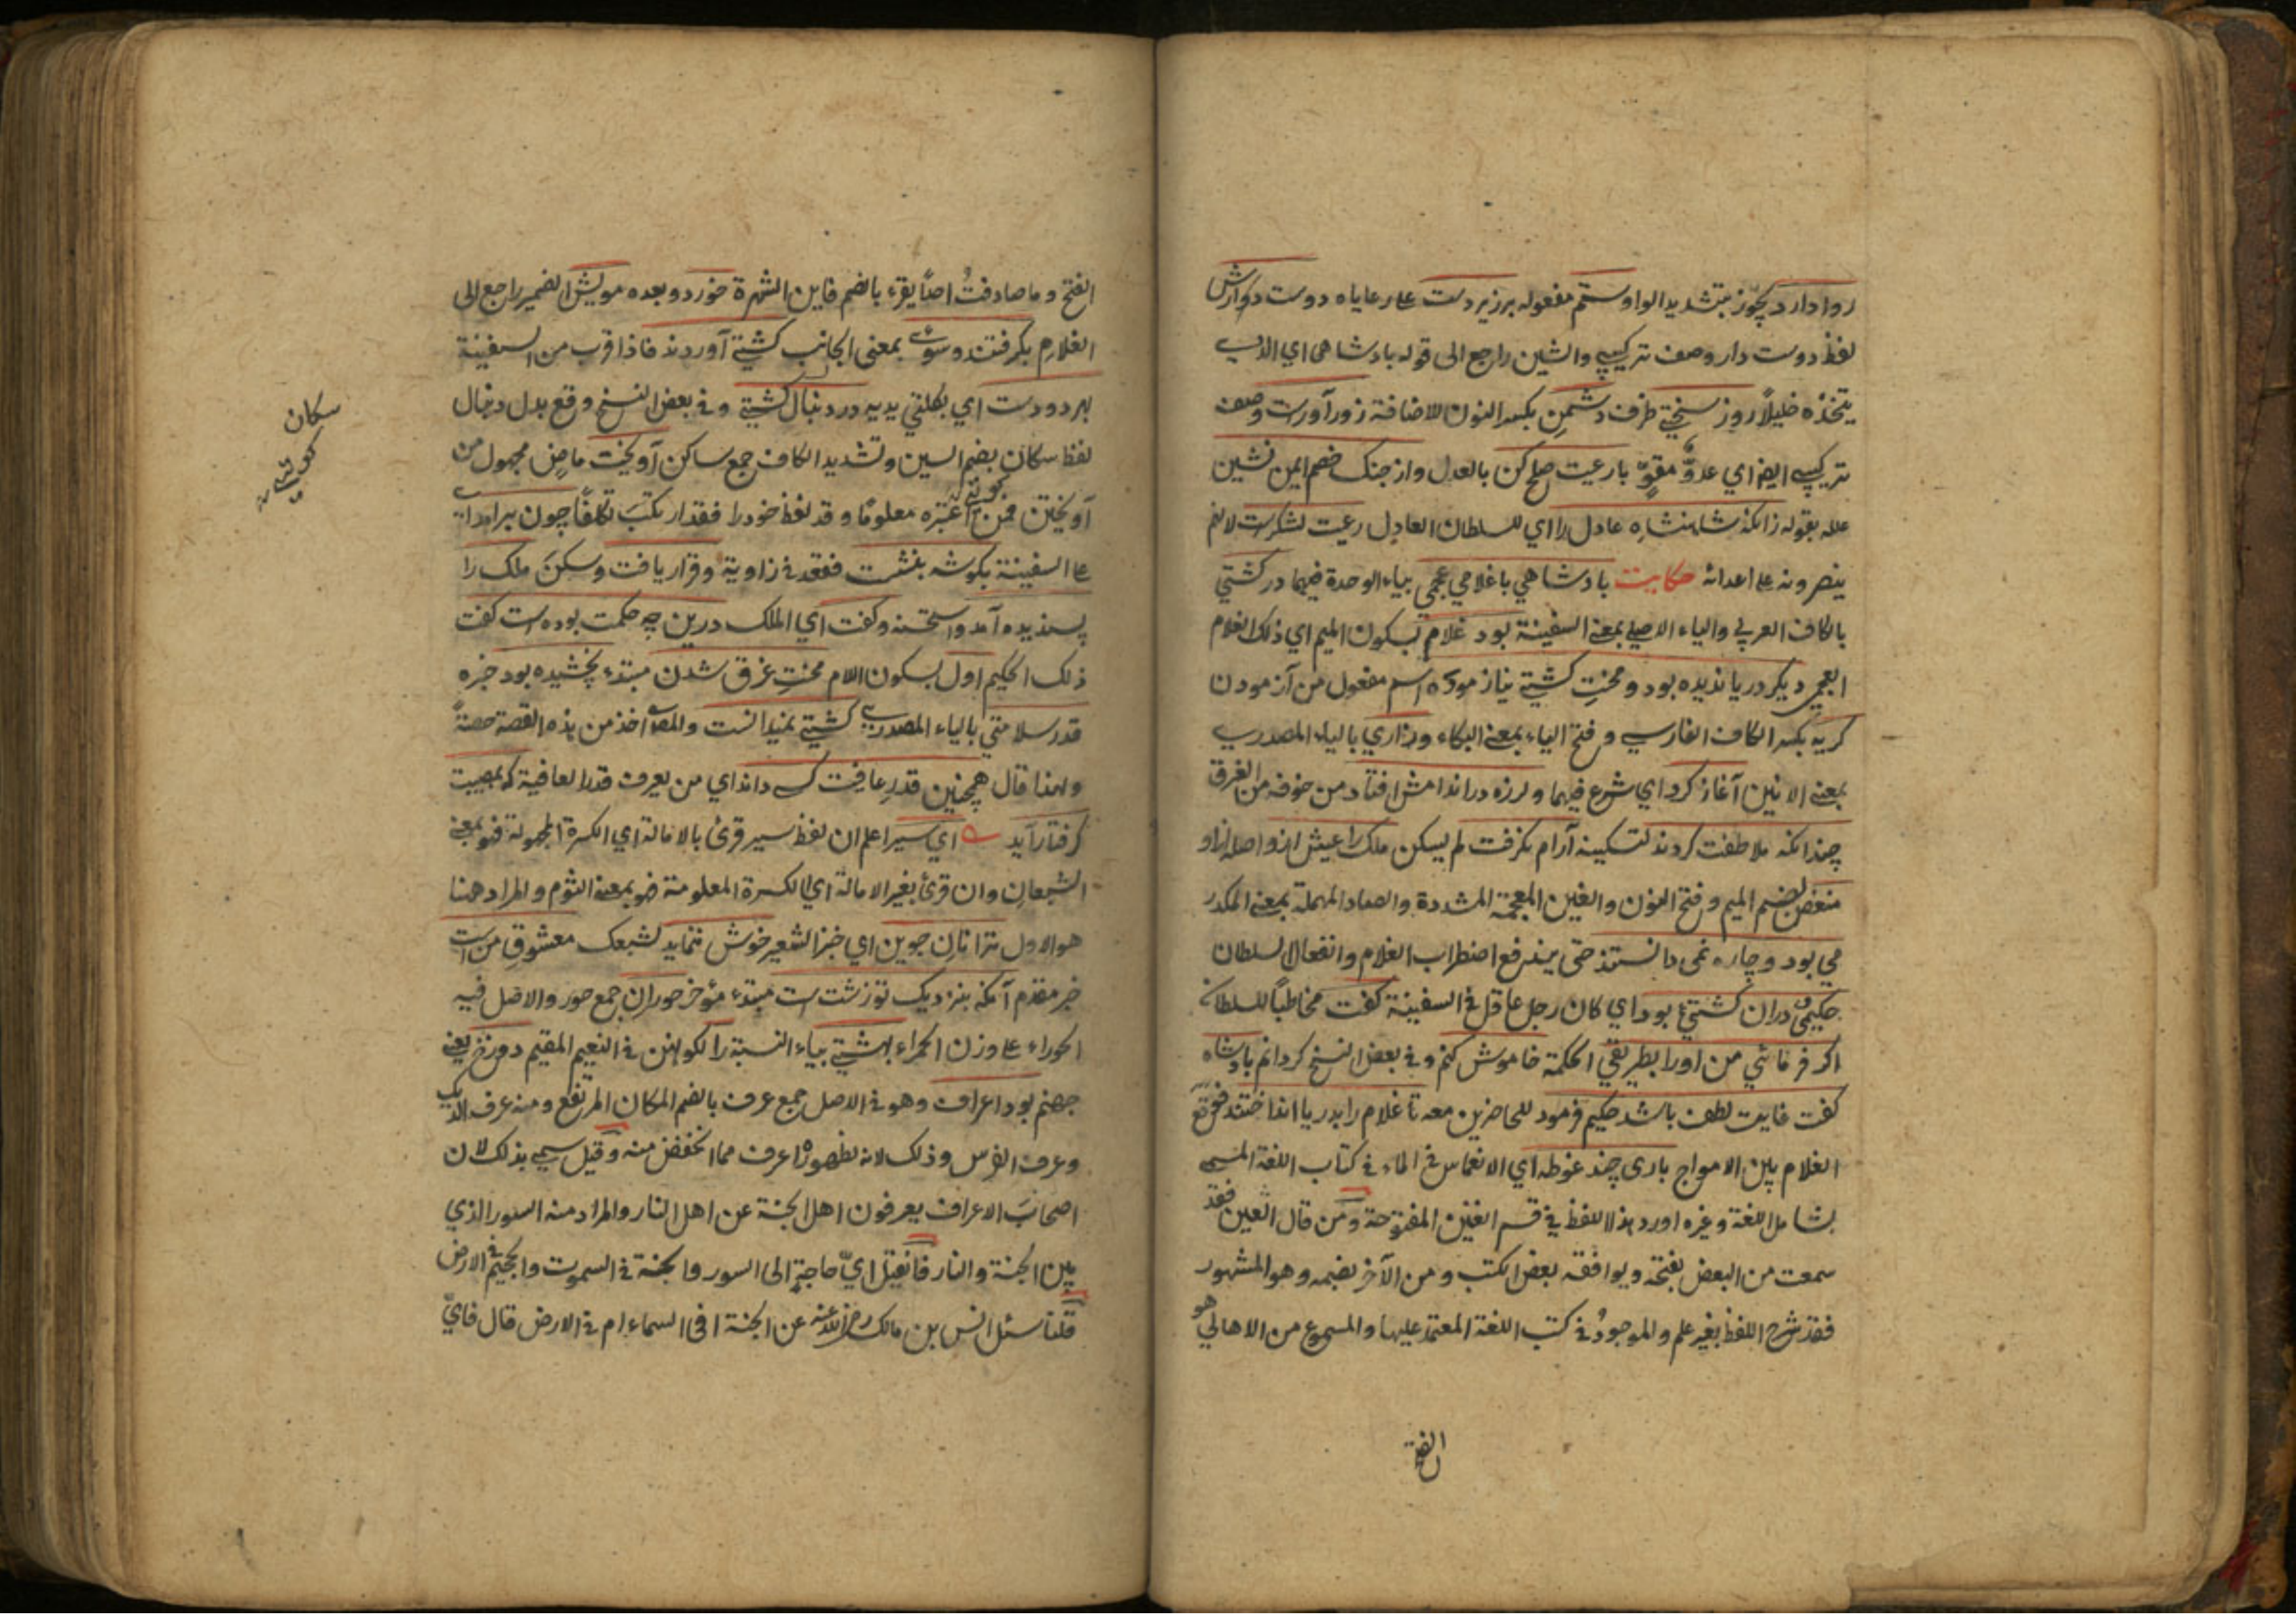 روا دارد يجوّز بتشديد الواو ستم مفعوله برزيردست على رعاياه دوست دارش
لفظ دوست دار وصف تركيبي والشين راجع الى قوله بادشاهى اي الذي
يتخذه خليلاً روز سختي ظرف دشمنِ بكسر النون للاضافة زور آورست وصف
تركيبي ايضا اي عدوٌّ مقوٍّ با رعيت صلح كن بالعدل واز جنك خصم ايمن نشين
علله بقوله زانكه شاهنشاهِ عادل را اي للسلطان العادل رعيت لشكرست لانهم
ينصرونه على اعدائه حكايت بادشاهي با غلامي عجمي بياء الوحدة فيهما در كشتي
بالكاف العربي والياء الاصلي بمعنى السفينة بود غلام بسكون الميم اي ذلك الغلام
العجمي ديكر دريا نديده بود ومحنتِ كشتي نيازموده اسم مفعول من آزمودن
كريه بكسر الكاف الفارسي وفتح الياء بمعنى البكاء وزاري بالياء المصدري
بمعنى الانين آغاز كرد اي شرع فيهما ولرزه در اندامش افتاد من خوفه من الغرق
چندانكه ملاطفت كردند لتسكينه آرام نكرفت لم يسكن ملك را عيش ازو اصله از او
منغص بضم الميم وفتح النون والغين المعجمة المشددة والصاد المهملة بمعنى المكدر
مي بود وچاره نمى دانستند حتى يندفع اضطراب الغلام وانفعال السلطان
حكيمى دران كشتي بود اي كان رجل عاقل في السفينة كفت مخاطباً للسلطان
اكر فرمائي من اورا بطريقي الحكمة خاموش كنم وفي بعض النسخ كردانم بادشاه
كفت غايت لطف باشد حكيم فرمود للحاضرين معه تا غلام را بدريا انداختند فوقع
الغلام بين الامواج بارى چند غوطه اي الانغماس في الماء في كتاب اللغة المسمى
بشامل اللغة وغيره اورد هذا اللفظ في قسم الغين المفتوحة ومن قال الغين فقد
سمعت من البعض بفتحه ويوافقه بعض الكتب ومن الآخر بضمه وهو المشهور
فقد شرح اللفظ بغير علم والموجودُ في كتب اللغة المعتمد عليها والمسموع من الاهالي هو
الفتح
الفتح وما صادفتُ احداً يقرء بالضم فاين الشهرة خورد وبعده مويش الضمير راجع الى
الغلام بكرفتند وسوى بمعنى الجانب كشتي آوردند فاذا قرب من السفينة
بهر دو دست اي بكلتي يديه در دنبال كشتي وفي بعض النسخ وقع بدل دنبال
لفظ سكان بضم السين وتشديد الكاف جمع ساكن آويخت ماضٍ مجهول من
آويختن فمن اعتبره معلومًا وقد لفظ خودرا فقد ارتكب تكلفًا چون برآمد اي
على السفينة بكوشه بنشست فقعد في زاوية وقرار يافت وسكنَ ملك را
پسنديده آمد واستحسنه وكفت اي الملك درين چه حكمت بوده است كفت
ذلك الحكيم اول بسكون اللام محنتِ غرق شدن مبتدء نچشيده بود خبره
قدر سلامتي بالياء المصدري كشتي نميدانست والمص اخذ من هذه القصة حصةً
ولهذا قال همچنين قدرِ عافيت كسى داند اي من يعرف قدر العافية كه بمصيبت
كرفتار آيد اي سير اعلم ان لفظ سير قرئ بالامالة اي الكسرة المجهولة فهو بمعنى
الشبعان وان قرئ بغير الامالة اي الكسرة المعلومة فهو بمعنى الثوم والمراد ههنا
هو الاول ترا نانِ جوين اي خبز الشعير خوش ننمايد لشبعك معشوقِ من است
خبر مقدم آنكه بنزديك تو زشت است مبتدء مؤخر حوران جمع حور والاصل فيه
الحوراء على وزن الحمراء بهشتي بياء النسبة را لكونهن في النعيم المقيم دوزخ يعنى
جهنم بود اعراف وهو في الاصل جمع عرف بالضم المكان المرتفع ومنه عرف الديك
وعرف الفرس وذلك لانه بظهوره اعرف مما انخفض منه وقيل سمي بذلك لان
اصحابَ الاعراف يعرفون اهل الجنة عن اهل النار والمراد منه السور الذي
بين الجنة والنار فان قيل ايّ حاجةٍ الى السور والجنة في السموت والجحيم في الارض
قلنا سئل انس بن مالك رضى الله عنه عن الجنة افى السماء ام في الارض قال فايّ
سكان